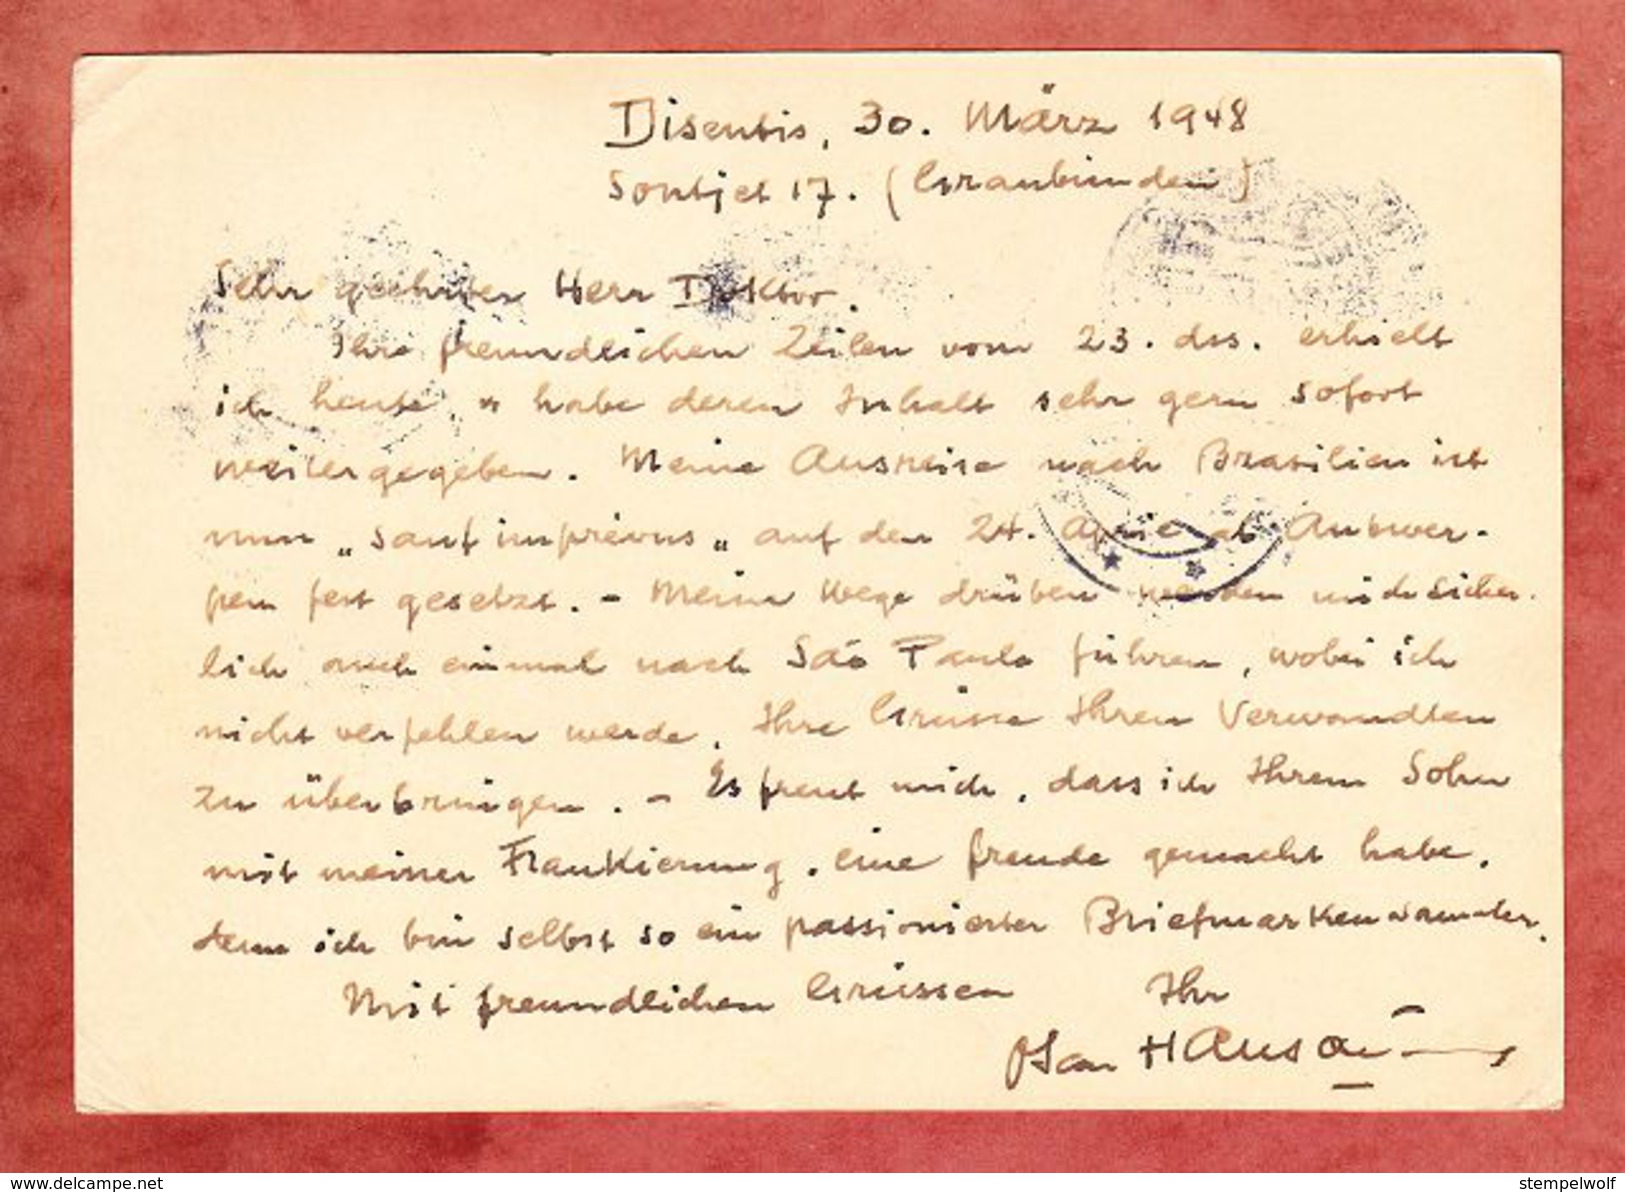 Disentis, 30. März 1948
Sontjet 17. (Graubünden)
Sehr geehrter Herr Doktor.
Ihre freundlichen Zeilen vom 23. dss. erhielt
ich heute, u habe deren Inhalt sehr gern sofort
weitergegeben. Meine Ausreise nach Brasilien ist
nun „sauf imprévus„ auf den 24. April ab Antwer-
pen fest gesetzt. - Meine Wege drüben werden mich sicher-
lich auch einmal nach São Paulo führen, wobei ich
nicht verfehlen werde, Ihre Grüsse Ihren Verwandten
zu überbringen. - Es freut mich, dass ich Ihrem Sohn
mit meiner Frankierung, eine freude gemacht habe,
denn ich bin selbst so ein passionierter Briefmarkensammler.
Mit freundlichen Grüssen Ihr
delcampe.net
stempelwolf